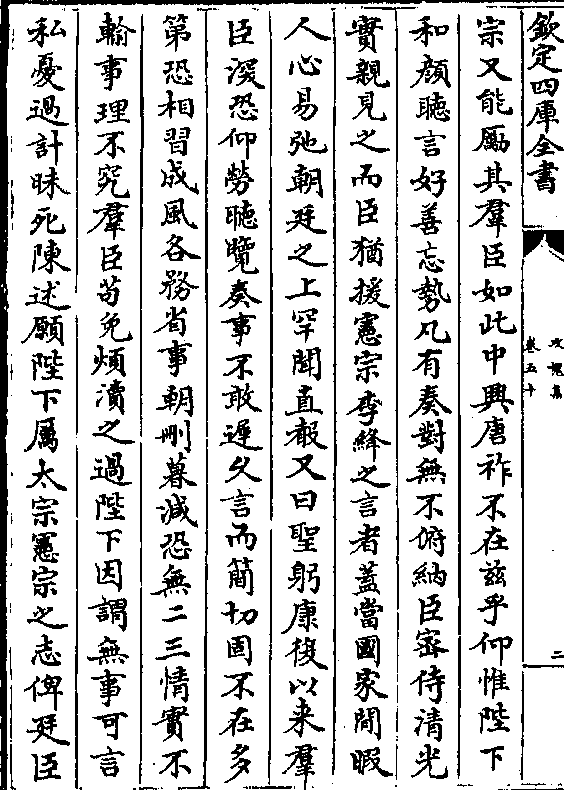 欽定四庫全書
攻媿集
卷五十
二
宗又能厲其羣臣如此中興唐祚不在兹乎仰惟陛下
和顔聽言好善忘勢凡有奏對無不俯納臣密侍清光
實親見之而臣猶援憲宗李絳之言者蓋當國家閒暇
人心易弛朝廷之上罕聞直報又曰聖躬康復以来羣
臣深恐仰勞聽覽奏事不敢遲久言而簡切固不在多
第恐相習成風各務省事朝刪暮減恐無二三情實不
輸事理不究羣臣苟免煩瀆之過陛下因謂無事可言
私憂過計昧死陳述願陛下厲太宗憲宗之志俾廷臣